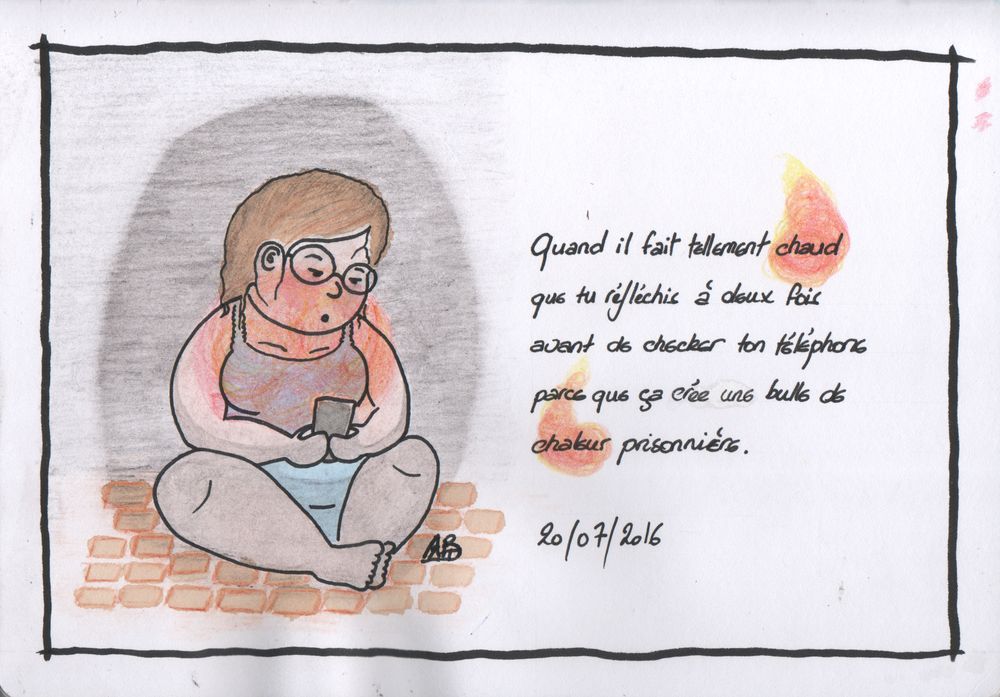 Quand il fait tellement chaud
que tu réfléchis à deux fois
avant de checker ton téléphone
parce que ça crée une bulle de
chaleur prisonnière.
20/07/2016